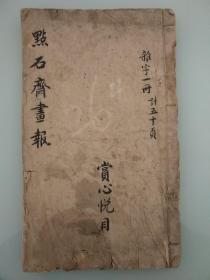 雜字一冊 計五十頁
賞心悅目
點石齋畫報